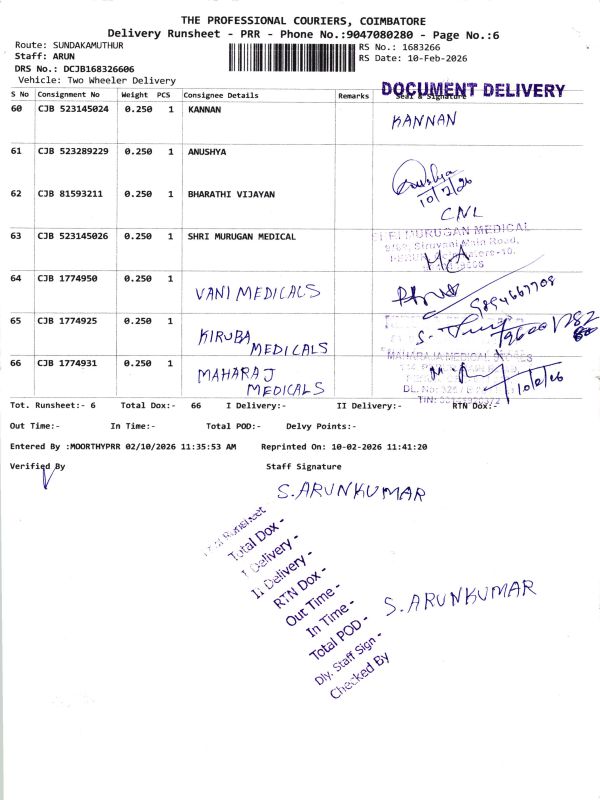 THE PROFESSIONAL COURIERS, COIMBATORE
Delivery Runsheet - PRR - Phone No.:9047080280 - Page No.:6
Route: SUNDAKAMUTHUR
RS No.: 1683266
Staff: ARUN
RS Date: 10-Feb-2026
DRS No.: DCJB168326606
Vehicle: Two Wheeler Delivery
DOCUMENT DELIVERY
S No Consignment No Weight PCS Consignee Details Remarks Seal & Signature
60 CJB 523145024 0.250 1 KANNAN KANNAN
61 CJB 523289229 0.250 1 ANUSHYA Anushya
10/2/26
62 CJB 81593211 0.250 1 BHARATHI VIJAYAN
CNL
63 CJB 523145026 0.250 1 SHRI MURUGAN MEDICAL SHRI MURUGAN MEDICAL
Siruvani Main Road,
64 CJB 1774950 0.250 1 VANI MEDICALS
9894667708
65 CJB 1774925 0.250 1 KIRUBA MEDICALS
66 CJB 1774931 0.250 1 MAHARAJ MEDICALS
MAHARAJA MEDICAL STORES
10/2/26
Tot. Runsheet:- 6 Total Dox:- 66 I Delivery:- II Delivery:- RTN Dox:-
Out Time:- In Time:- Total POD:- Delvy Points:-
Entered By :MOORTHYPRR 02/10/2026 11:35:53 AM Reprinted On: 10-02-2026 11:41:20
Verified By Staff Signature
S.ARUNKUMAR
Total Runsheet
Total Dox -
I Delivery -
II Delivery -
RTN Dox -
Out Time -
In Time -
Total POD -
Dly. Staff Sign -
Checked By
S.ARUNKUMAR